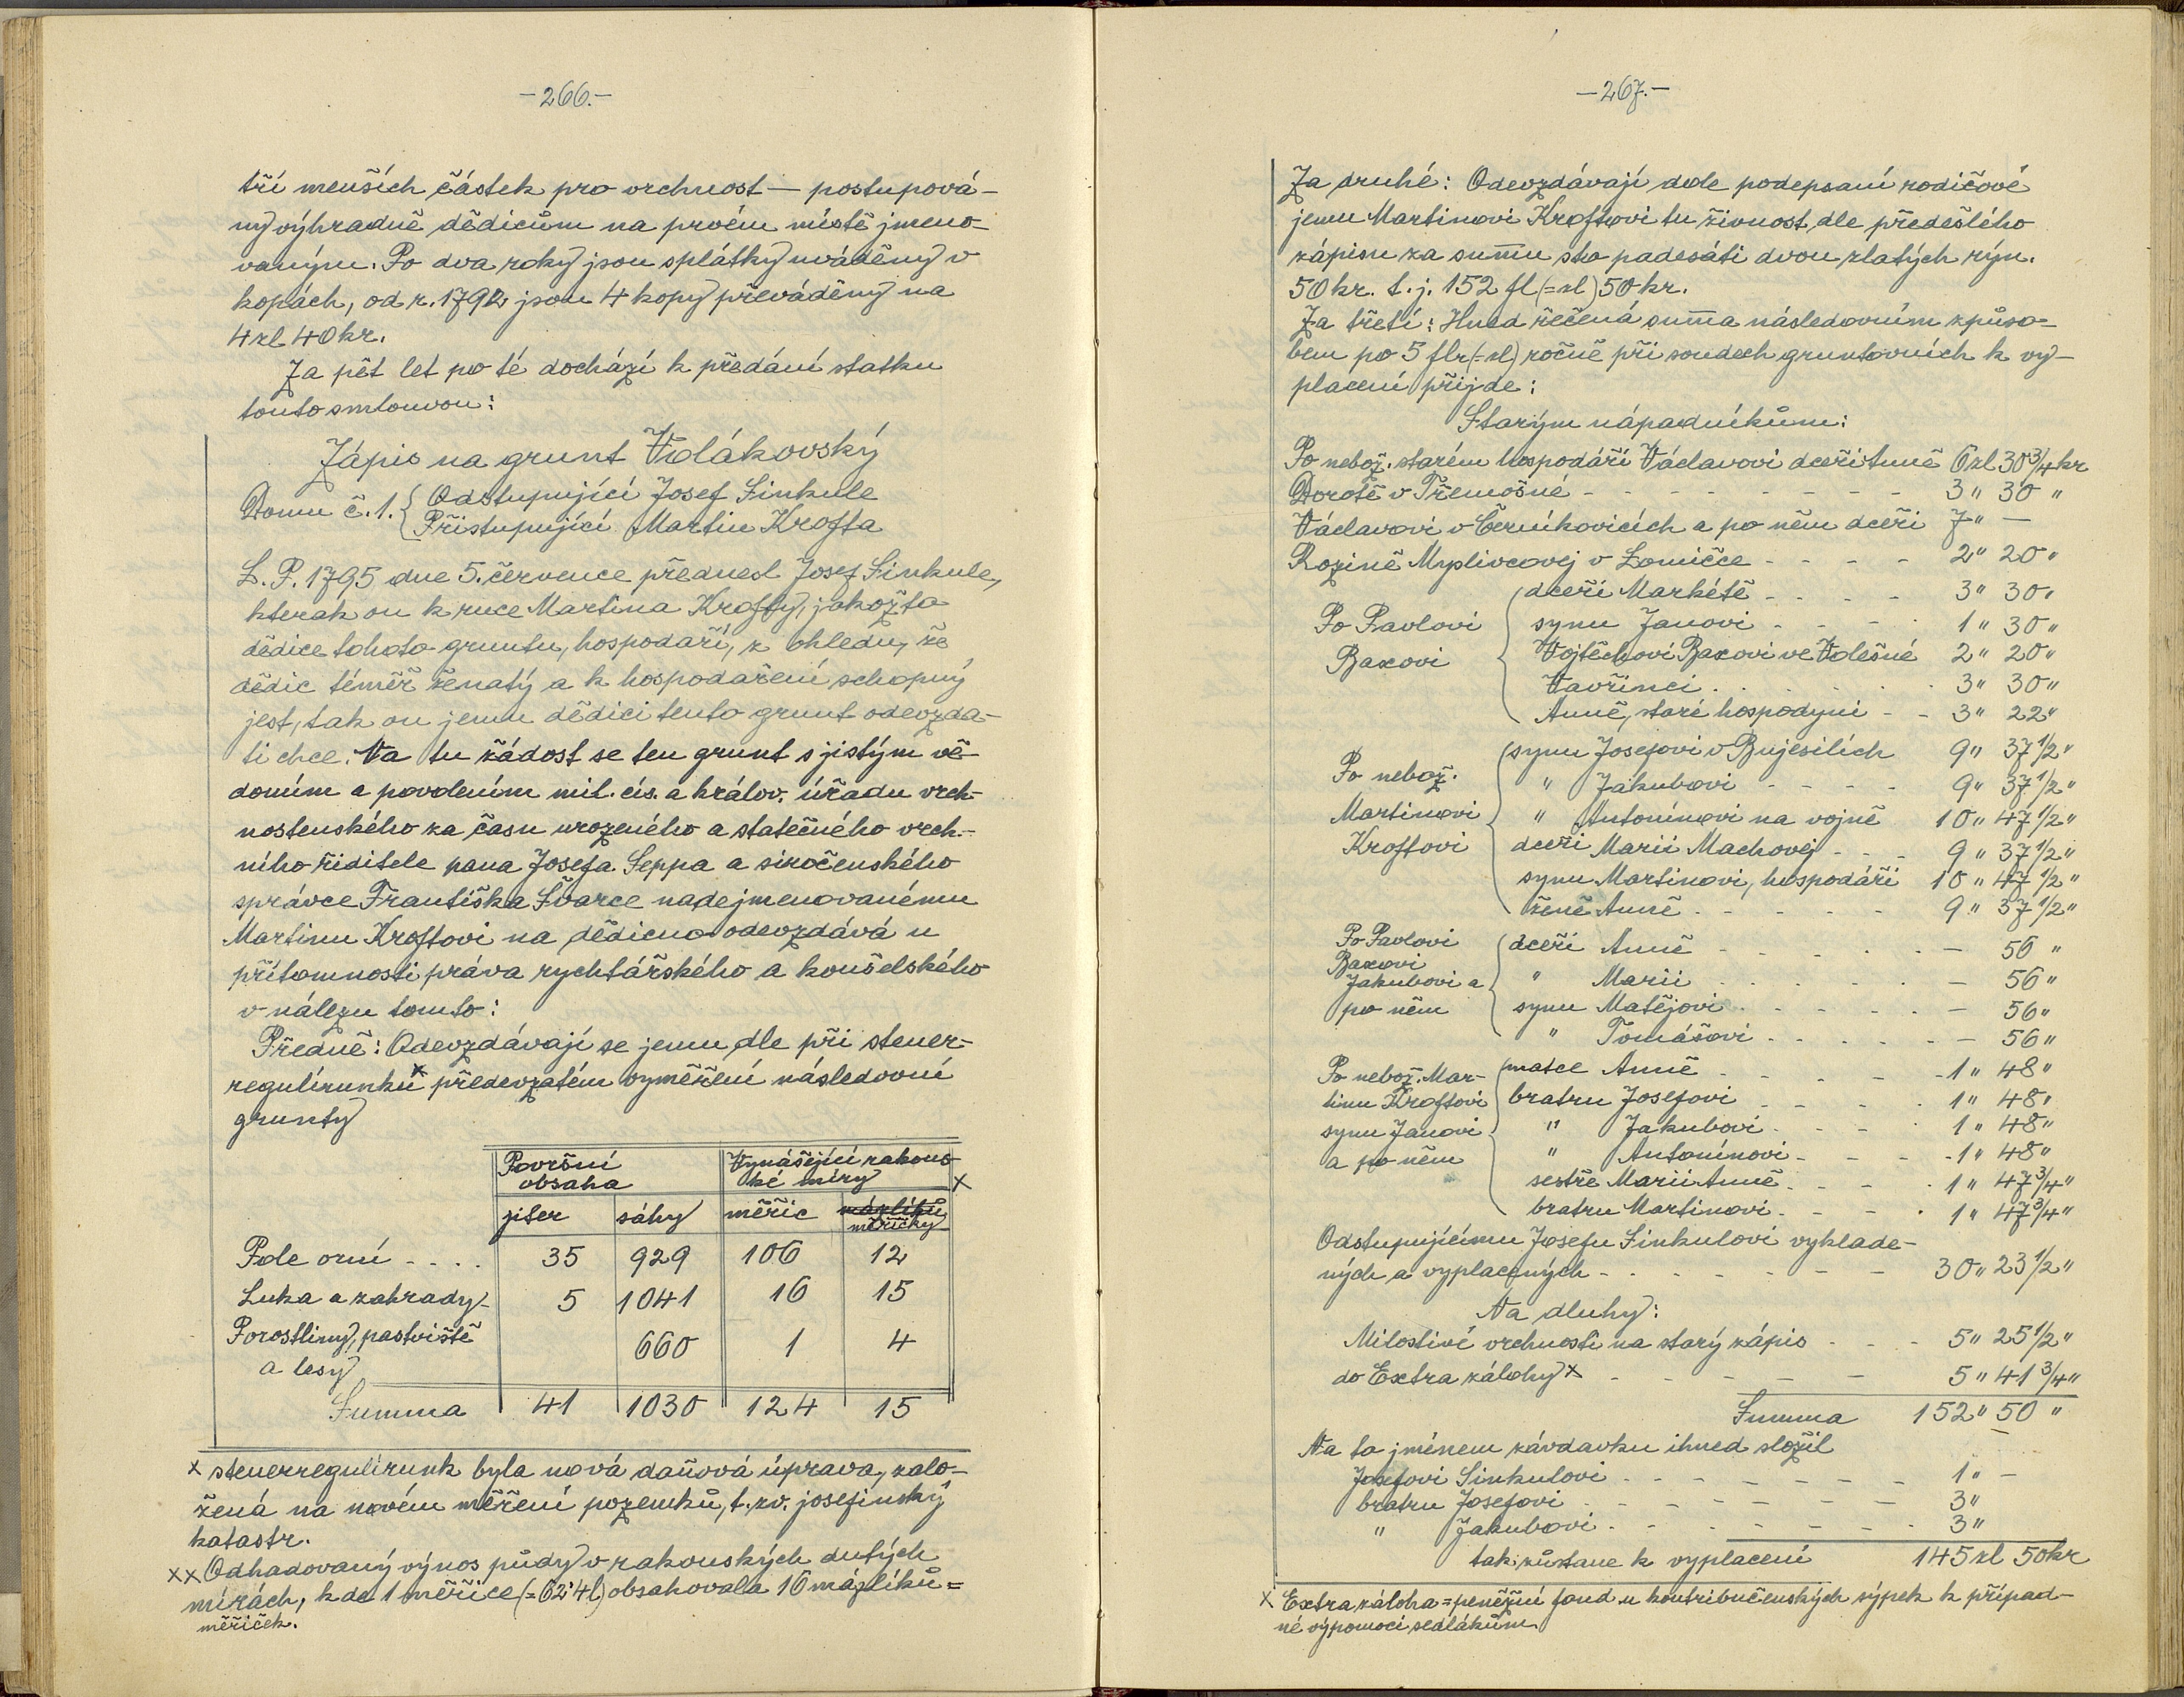 -266.-
tří menších částek pro vrchnost — postupová-
ny výhradně dědicům na prvém místě jmeno-
vaným. Po dva roky jsou splátky uváděny v
kopách, od r. 1792 jsou 4 kopy převáděny na
4 zl 40 kr.
Za pět let po té dochází k předání statku
touto smlouvou:
Zápis na grunt Vidákovský
Domu č. 1. { Odstupující Josef Sinkule
Přistupující Martin Krofta
L. P. 1795 dne 5. července přednesl Josef Sinkule,
kterak on k ruce Martina Krofty, jakožto
dědice tohoto gruntu, hospodaří, z ohledu, že
dědic téměř ženatý a k hospodaření schopný
jest, tak on jemu dědici tento grunt odevzda-
ti chce. Na tu žádost se ten grunt s jistým vě-
domím a povolením mil. cís. a králov. úřadu vrch-
nostenského za času urozeného a statečného vrch-
ního řiditele pana Josefa Seppa a siročenského
správce Františka Švarce nadejmenovanému
Martinu Kroftovi na dědicno odevzdává u
přítomnosti práva rychtářského a konšelského
v nálezu tomto:
Předně: Odevzdávají se jemu dle při steuer-
regulirunku x předevzatém vyměření následovní
grunty
Površní Vynášející rakous-
obsaha ké míry x
jiter sáhy měřic mázlíků
měřičky
Pole orní - . . . 35 929 106 12
Luka a zahrady - 5 1041 16 15
Porostliny, pastviště 660 1 4
a lesy
Summa 41 1030 124 15
x steuerregulirunk byla nová daňová úprava, zalo-
žená na novém měření pozemků, t. zv. josefinský
katastr.
xx Odhadovaný výnos půdy v rakouských dutých
mírách, kde 1 měřice (= 62'4 l) obsahovala 16 mázlíků =
měřiček.
-267.-
Za druhé: Odevzdávají dole podepsaní rodičové
jemu Martinovi Kroftovi tu živnost dle předešlého
zápisu za summu sto padesáti dvou zlatých rýn.
50 kr. t. j. 152 fl (= zl) 50 kr.
Za třetí: Hned řečená summa následovním způso-
bem po 5 flr (= zl) ročně při soudech gruntovních k vy-
placení přijde:
Starým nápadníkům:
Po nebož. starém hospodáři Václavovi dceři Anně 6 zl 30 3/4 kr
Dorotě v Třemošné - - - - - - - - 3 " 30 "
Václavovi v Černíkovicích a po něm dceři 7 " —
Rozině Myslivcovej v Lomičce - - - - 2 " 20 "
dceři Markétě - - - - 3 " 30 "
Po Pavlovi synu Janovi - - - - 1 " 30 "
Baxovi Vojtěchovi Baxovi ve Volešné 2 " 20 "
Vavřinci . . . . . . 3 " 30 "
Anně, staré hospodyni - - 3 " 22 "
synu Josefovi v Bujesilích 9 " 37 1/2 "
Po nebož. " Jakubovi - - - - 9 " 37 1/2 "
Martinovi " Antonínovi na vojně 10 " 47 1/2 "
Kroftovi dceři Marii Machovej - - - 9 " 37 1/2 "
synu Martinovi, hospodáři 10 " 47 1/2 "
ženě Anně - - - - - 9 " 37 1/2 "
Po Pavlovi dceři Anně - - - - - — 56 "
Baxovi
Jakubovi a " Marii . . . . . — 56 "
po něm synu Matějovi . . . . . — 56 "
" Tomášovi . . . . . — 56 "
Po nebož. Mar- matce Anně - - - - - 1 " 48 "
tinu Kroftovi bratru Josefovi - - - - 1 " 48 "
synu Janovi " Jakubovi - - - - 1 " 48 "
a po něm " Antonínovi - - - - 1 " 48 "
sestře Marii Anně - - - - 1 " 47 3/4 "
bratru Martinovi - - - - 1 " 47 3/4 "
Odstupujícímu Josefu Sinkulovi vyklade-
ných a vyplacených - - - - - - - 30 " 23 1/2 "
Na dluhy:
Milostivé vrchnosti na starý zápis - - - 5 " 25 1/2 "
do Extra zálohy x - - - - - - 5 " 41 3/4 "
Summa 152 " 50 "
Na to jménem závdavku ihned složil
Josefovi Sinkulovi - - - - - - - 1 " —
bratru Josefovi - - - - - - - 3 "
" Jakubovi - - - - - - - 3 "
tak zůstane k vyplacení 145 zl 50 kr
x Extra záloha = peněžní fond u kontribučenských sýpek k případ-
né výpomoci sedlákům.